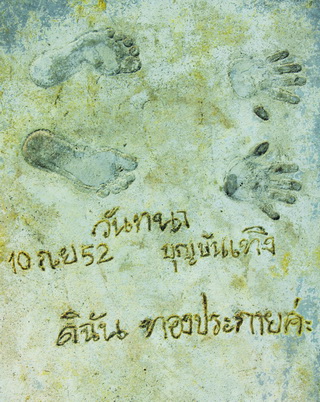 วันทนา
10 ก.ย 52 บุญบันเทิง
ดิฉัน ทองประกายค่ะ